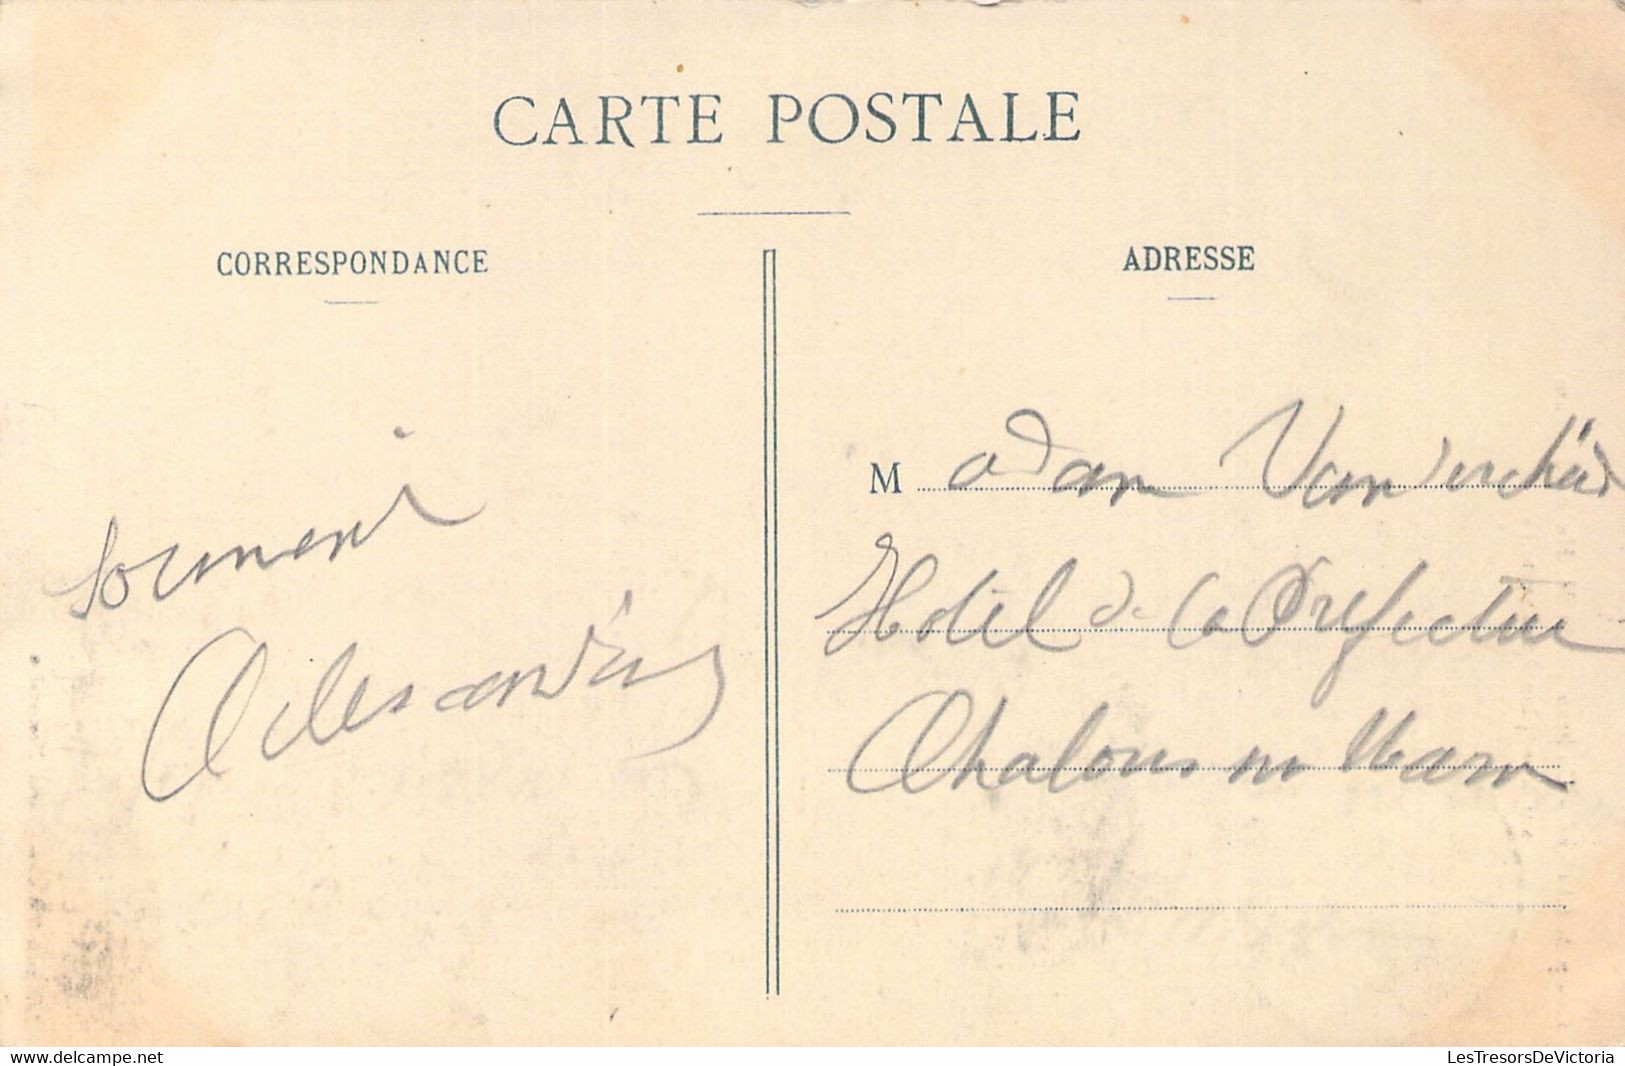 CARTE POSTALE
CORRESPONDANCE
ADRESSE
Souvenir
Alexandrine
Madam Vanderchär
Hotel de la Préfecture
Chalons sur Marn
www.delcampe.net
LesTresorsDeVictoria